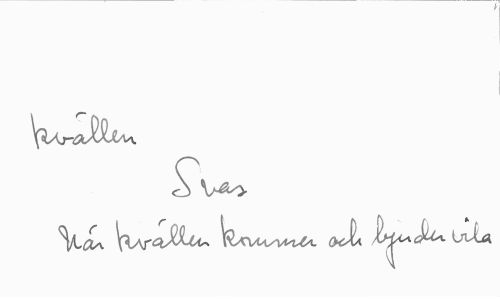 kvällen
Svar
När kvällen kommer och bjuder vila